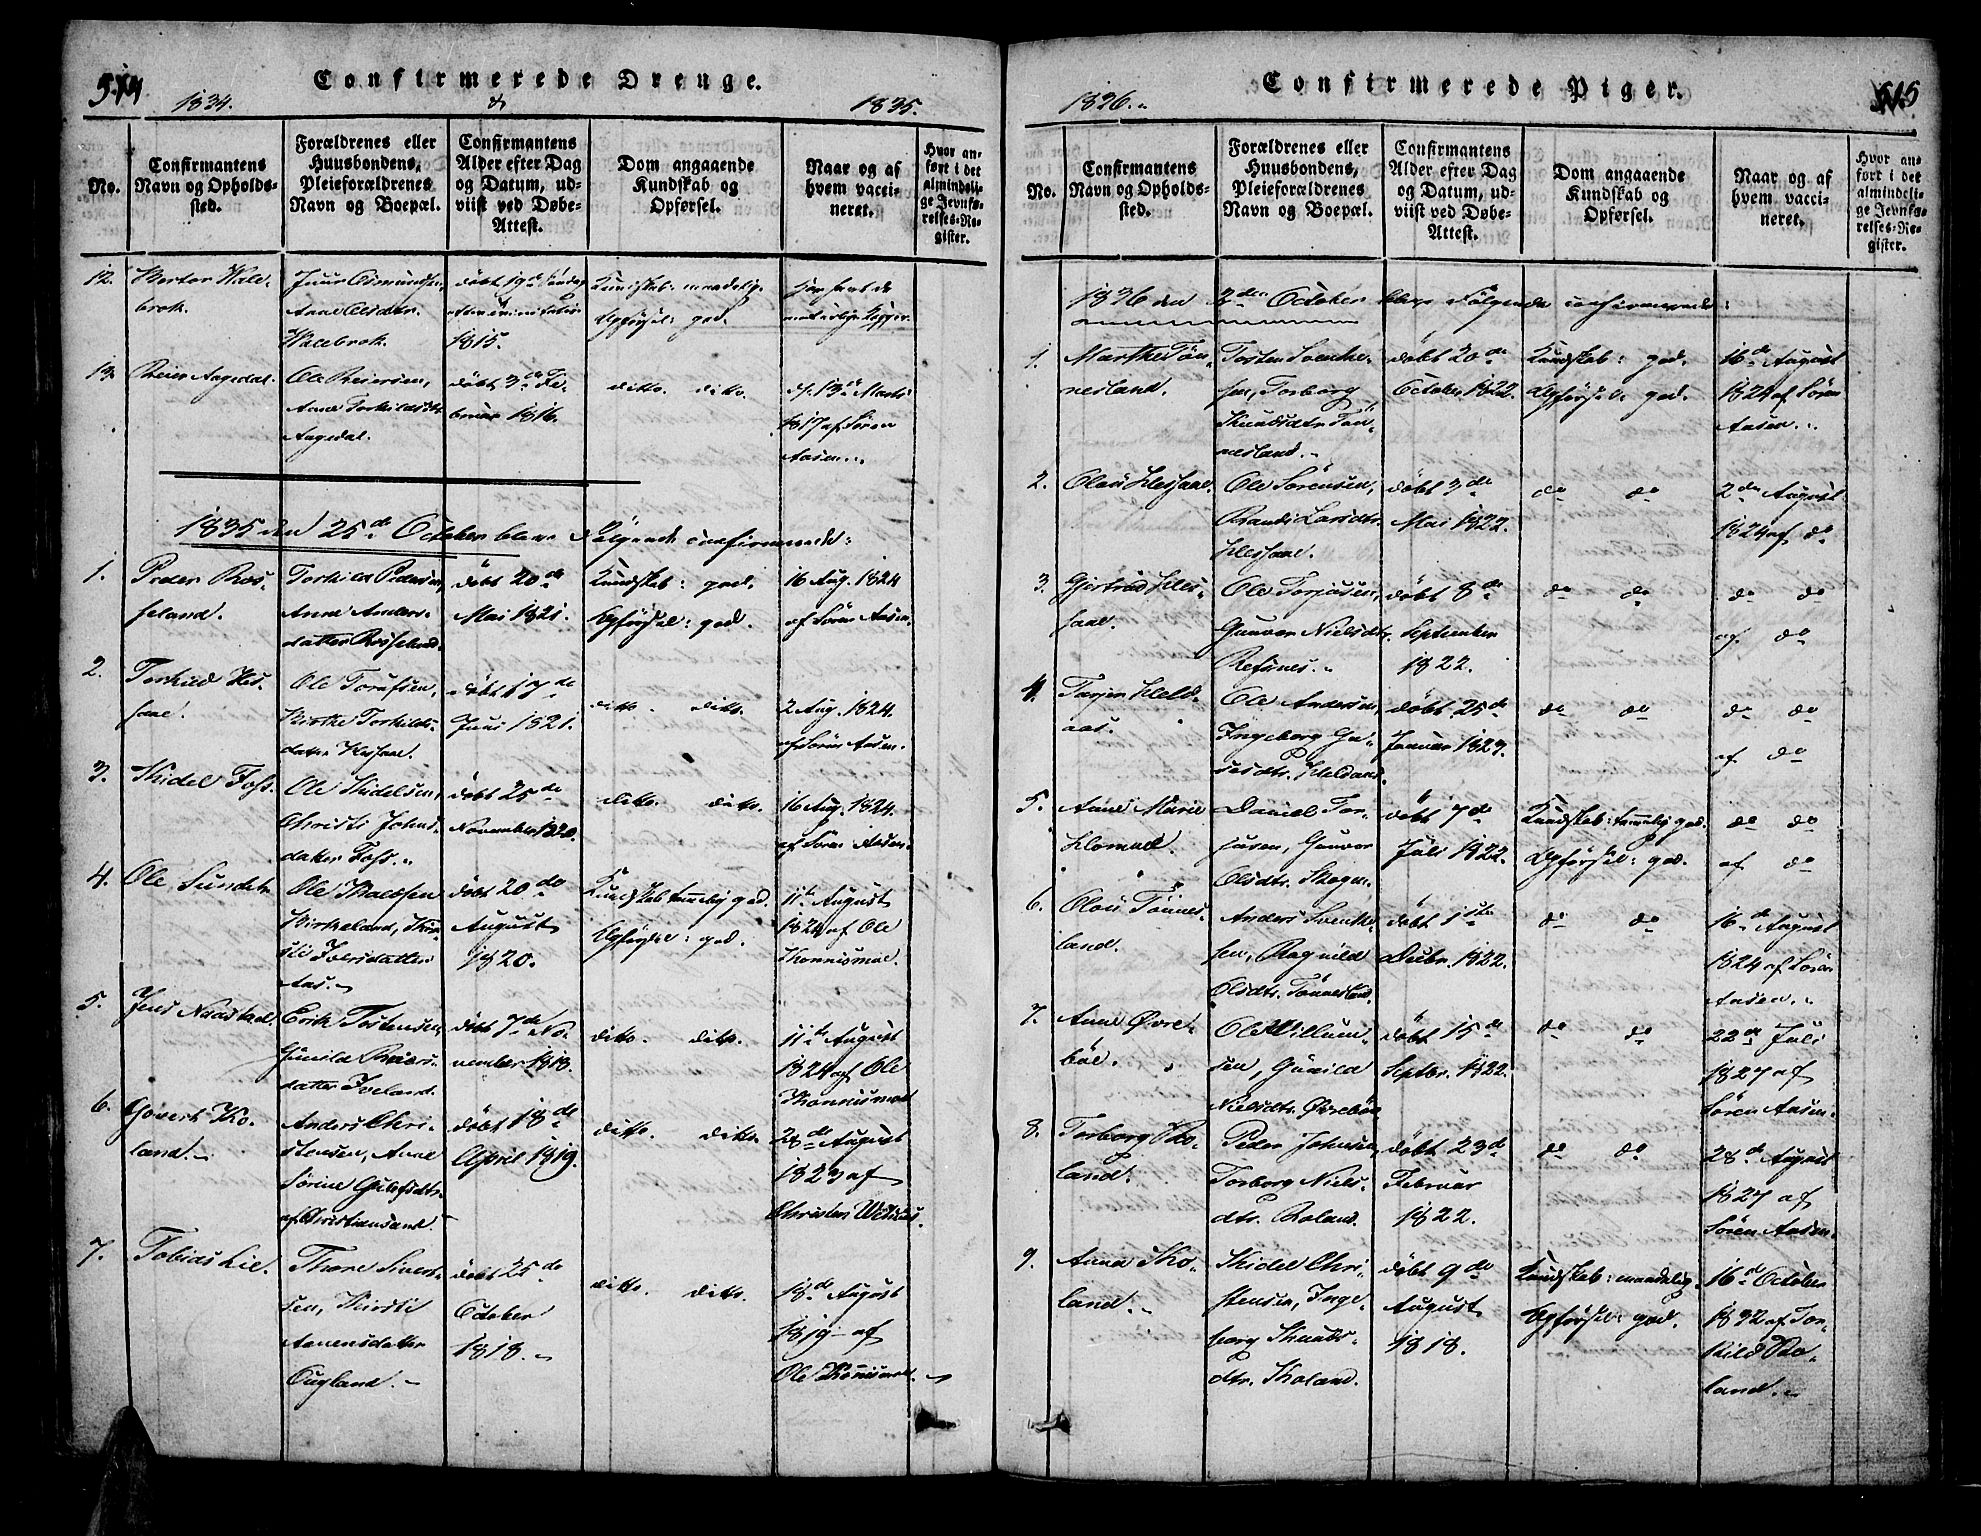 514
Confirmerede Drenge.
1834. & 1835.
No.
Confirmantens
Navn og Opholds-
sted.
Forældrenes eller
Huusbondens,
Pleieforældrenes
Navn og Boepæl.
Confirmantens
Alder efter Dag
og Datum, ud-
viist ved Døbe-
Attest.
Dom angaaende
Kundskab og
Opførsel.
Naar og af
hvem vacci-
neret.
Hvor an-
ført i det
almindeli-
ge Jevnfø-
relses-Re-
gister.
12.
Juur Osmundsen,
1815.
Opførsel: god.
13.
Reier Aagedal.
Ole Reiersen,
Anne Torkildsdtr.
Aagedal.
døbt 3de Fe-
bruar 1816.
ditto. ditto.
d. 13de Marts
1817 af Søren
Aasen.
1835 den 25de October bleve Følgende confirmerede:
1.
Peder Ros-
seland.
Torkild Pedersen,
Anne Anders-
datter Rosseland.
døbt 20de
Mai 1821.
Kundskab: god.
Opførsel: god.
16 Aug. 1824
af Søren Aasen.
2.
Torkild
Ole
Kirstie Torkilds-
datter
døbt 17de
Juni 1821.
ditto. ditto.
2 Aug. 1824.
af Søren Aasen.
3.
Kidel Foss.
Ole Kidelsen,
Christi Johns-
datter Foss.
døbt 25de
November 1820.
ditto. ditto.
16 Aug. 1824.
af Søren Aasen.
4.
Ole Sundet.
Ole
Birkeland,
Aas.
døbt 20de
August
1820.
Kundskab temmelig god.
Opførsel: god.
11te August
1824 af Ole
5.
Jens
Erik Tostensen,
Gunild Reiers-
datter Iveland.
døbt 7de No-
vember 1818.
ditto. ditto.
11te August
1824 af Ole
6.
Govert Ko-
land.
Anders Chri-
stensen, Anne
Sørine
af Christiansand.
døbt 18de
April 1819.
ditto. ditto.
28de August
1823 af
7.
Tobias Lie.
Thore Sivert-
sen, Kirstie
Aanensdatter
Ougland.
døbt 25de
October
1818.
ditto. ditto.
18de August
1819 af
Ole
Confirmerede Piger.
515
1836.
No.
Confirmantens
Navn og Opholds-
sted.
Forældrenes eller
Huusbondens,
Pleieforældrenes
Navn og Boepæl.
Confirmantens
Alder efter Dag
og Datum, ud-
viist ved Døbe-
Attest.
Dom angaaende
Kundskab og
Opførsel.
Naar og af
hvem vacci-
neret.
Hvor an-
ført i det
almindeli-
ge Jevnfø-
relses-Re-
gister.
1836 den 2den October bleve Følgende confirmerede:
1.
Marthe Tøn-
nesland.
Tosten Svenke-
sen, Torborg
Knudsdtr. Tøn-
nesland.
døbt 20de
October 1822.
Kundskab: god.
Opførsel: god.
16de August
1824 af Søren
Aasen.
2.
Olau
Ole Sørensen,
Randi Larsdtr.
døbt 3de
Mai 1822.
do do
2den August
1824 af do
3.
Gjertrud
Ole Torjusen,
Gunvor Nielsdtr.
Refsnes.
døbt 8de
September
1822.
do do
do do
af do
4.
Ole Andersen,
Ingeborg
døbt 25de
Januar 1823.
do do
do do
af do
5.
Anne Marie
Daniel Tor-
jusen, Gunvor
Olsdtr.
døbt 7de
Juli 1822.
Kundskab: temmelig god.
Opførsel: god.
do do
af do
6.
Olau Tønnes-
land.
Anders Svenke-
sen, Ragnild
Olsdtr. Tønnesland.
døbt 1ste
Decbr. 1822.
do do
16de August
1824 af Søren
Aasen.
7.
Anne Øvre-
bøe.
Ole Willum-
sen, Gunild
Nielsdtr. Øvrebøe.
døbt 15de
Septbr. 1822.
do do
22de Juli
1827 af
Søren Aasen.
8.
Torborg Ro-
land.
Peder Johnsen,
Torborg Niels-
dtr. Roland.
døbt 23de
Februar
1822.
do do
28de August
1827 af
Søren Aasen.
9.
Anna Ko-
land.
Kidel Chri-
stensen, Inge-
borg Knuds-
dtr. Koland.
døbt 9de
August
1818.
Kundskab: maadelig.
Opførsel: god.
16de October
1832 af Tor-
kild Ro-
land.